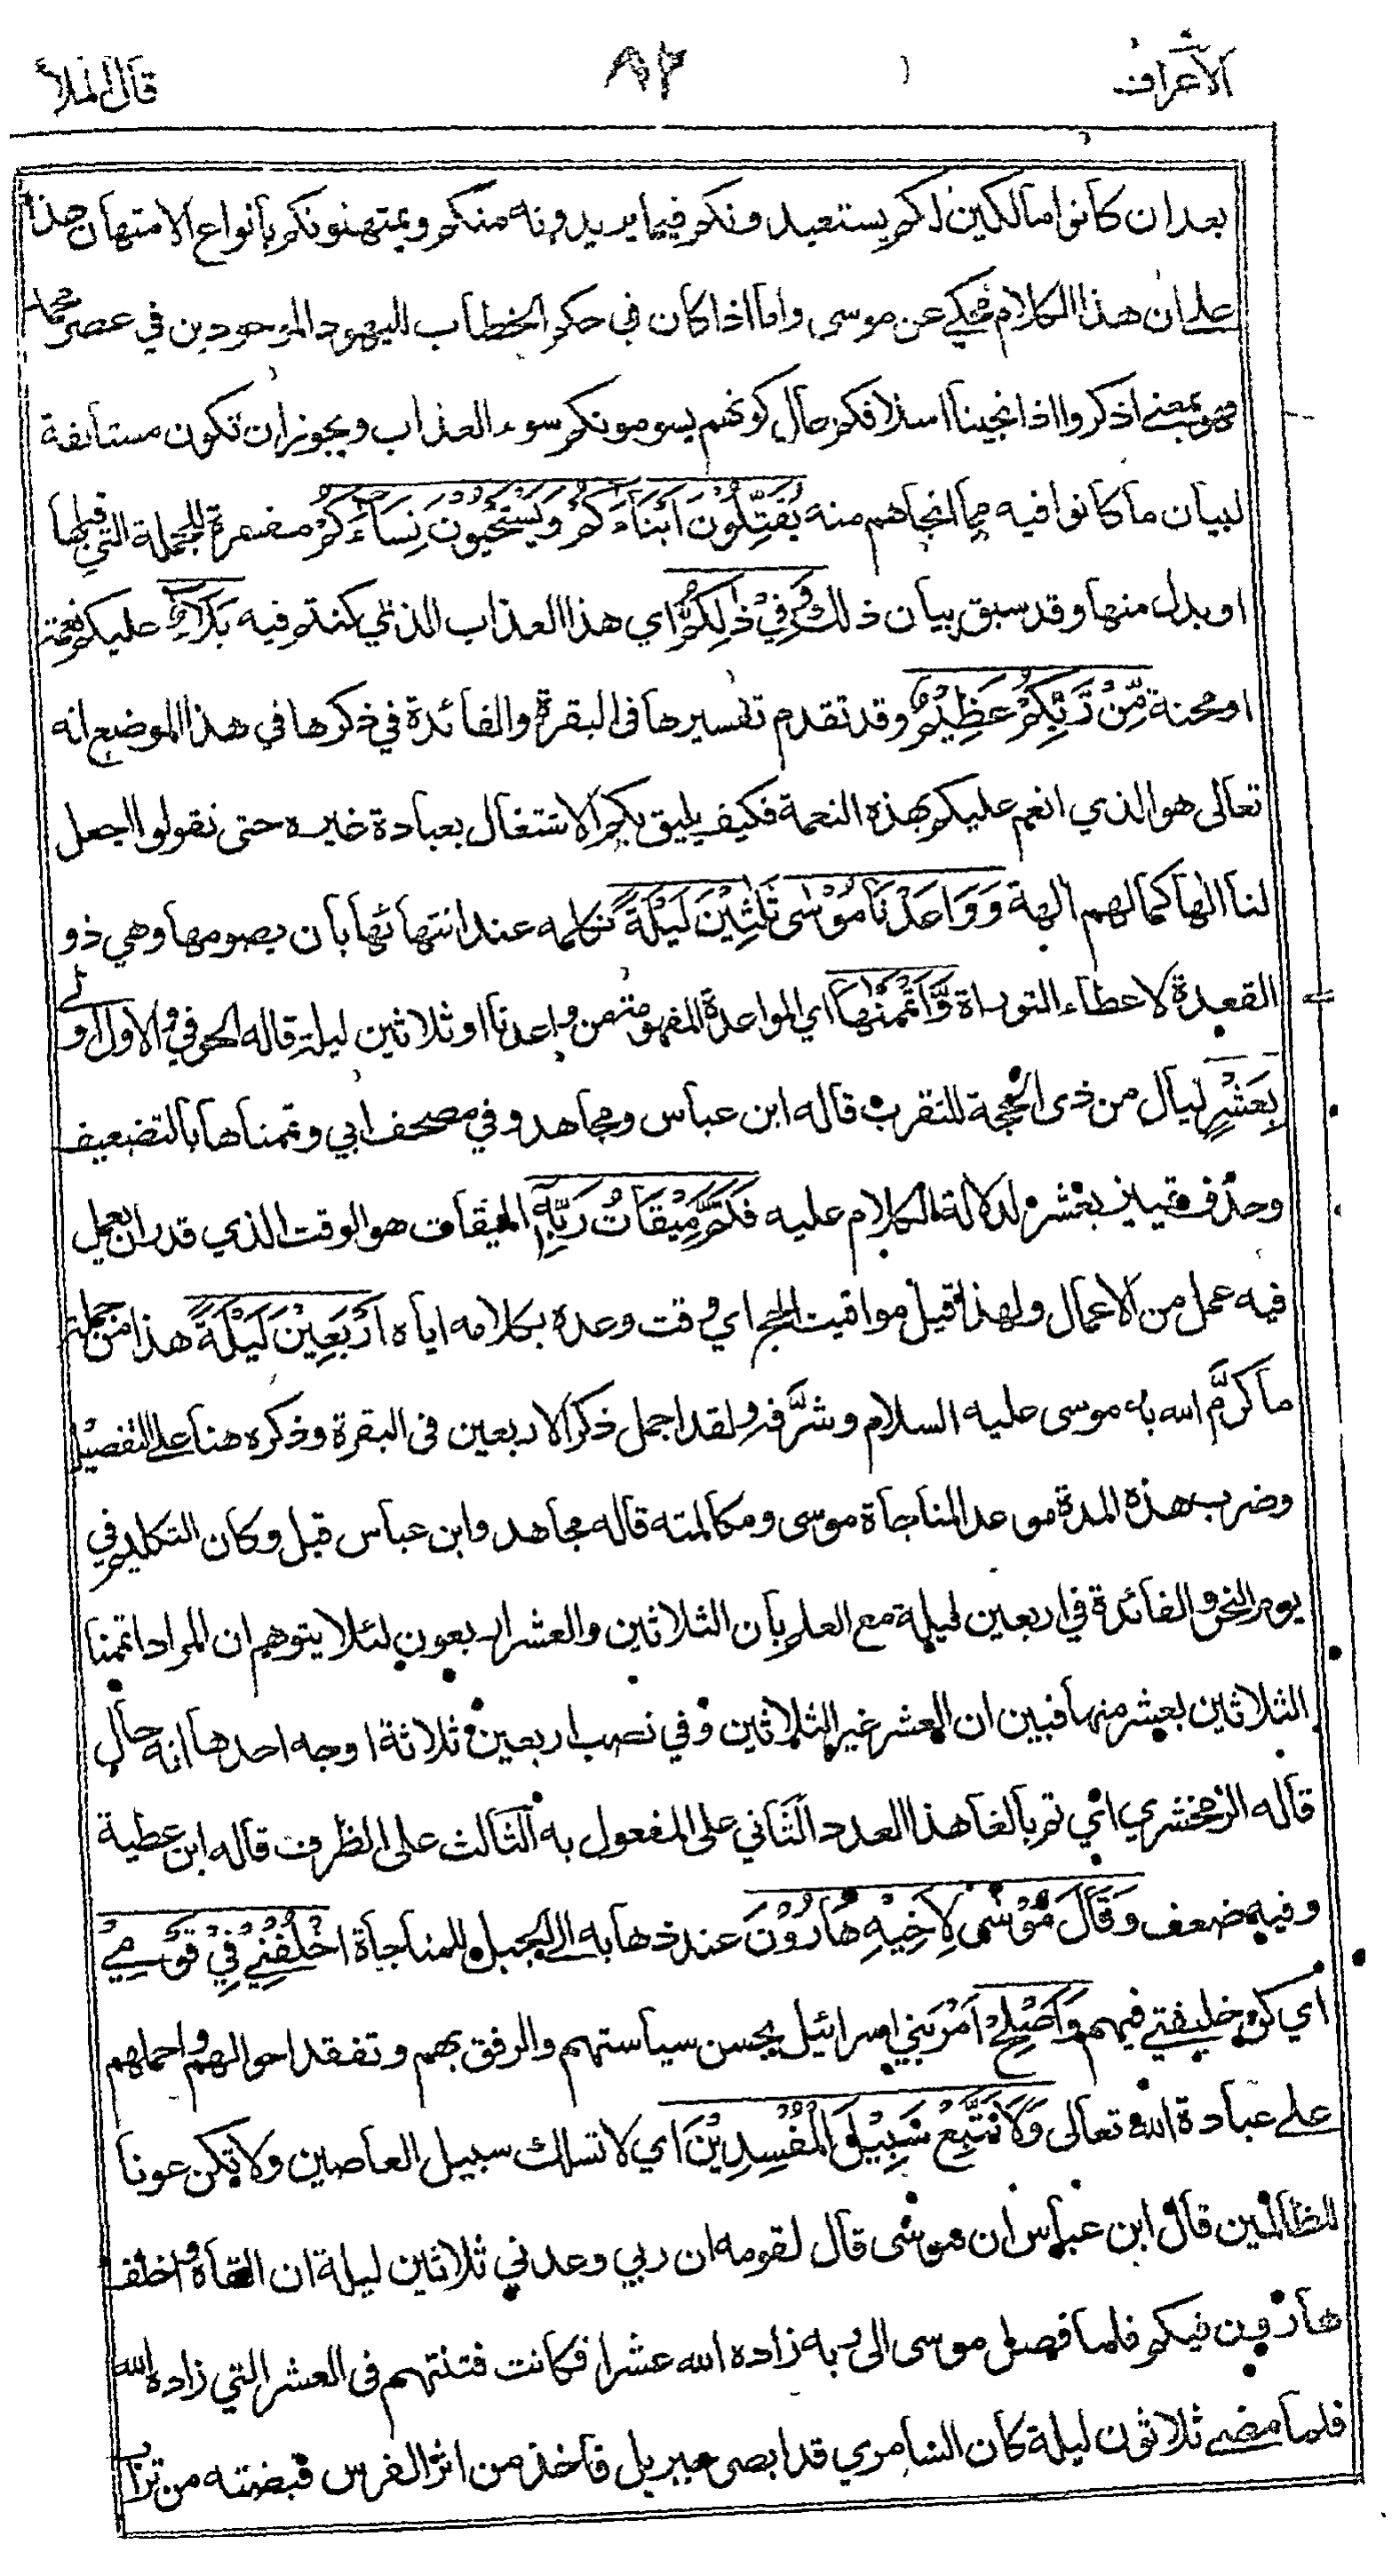 الأعراف ٨٣ قال الملأ
بعد ان كانوا مالكين لكم يستعبدونكم فيما يريدونه منكم ويمتهنونكم بأنواع الامتهان هذا
على ان هذا الكلام محكي عن موسى واما اذا كان في حكم الخطاب لليهود الموجودين في عصر محمد
فهو بمعنى اذكروا اذ انجينا اسلافكم حال كونهم يسومونكم سوء العذاب ويجوز ان تكون مستأنفة
لبيان ما كانوا فيه مما انجاهم منه يُقَتِّلُونَ أَبْنَاءَكُمْ وَيَسْتَحْيُونَ نِسَاءَكُمْ مفسرة للجملة التي قبلها
او بدل منها وقد سبق بيان ذلك وَفِيْ ذٰلِكُمْ اي هذا العذاب الذي كنتم فيه بَلَاءٌ عليكم نعمة
او محنة مِّنْ رَّبِّكُمْ عَظِيْمٌ وقد تقدم تفسيرها فى البقرة والفائدة في ذكرها في هذا الموضع انه
تعالى هو الذي انعم عليكم بهذه النعمة فكيف يليق بكم الاشتغال بعبادة غيره حتى تقولوا اجعل
لنا الها كما لهم الهة وَوَاعَدْنَا مُوْسٰى ثَلٰثِيْنَ لَيْلَةً نكلمه عند انتهائها بأن يصومها وهي ذو
القعدة لاعطاء التوراة وَّأَتْمَمْنٰهَا اي المواعدة المفهومة من واعدنا او ثلاثين ليلة قاله الحوفي والاول اولى
بِعَشْرٍ ليال من ذى الحجة للتقرب قاله ابن عباس ومجاهد وفي مصحف ابي وتممناها بالتضعيف
وحذف تمييز بعشر لدلالة الكلام عليه فَتَمَّ مِيْقَاتُ رَبِّهٖ الميقات هو الوقت الذي قدر ان يعمل
فيه عمل من الاعمال ولهذا قيل مواقيت الحج اي وقت وعده بكلامه اياه أَرْبَعِيْنَ لَيْلَةً هذا من جملة
ما كرَّم الله به موسى عليه السلام وشرَّفه ولقد اجمل ذكر الاربعين فى البقرة وذكره هنا على التفصيل
وضرب هذه المدة موعدا لمناجاة موسى ومكالمته قاله مجاهد وابن عباس قيل وكان التكليم في
يوم النحر والفائدة في اربعين ليلة مع العلم بأن الثلاثين والعشر اربعون لئلا يتوهم ان المراد اتممنا
الثلاثين بعشر منها فبين ان العشر غير الثلاثين وفي نصب اربعين ثلاثة اوجه احدها انه حال
قاله الزمخشري اي تم بالغا هذا العدد الثاني على المفعول به الثالث على الظرف قاله ابن عطية
وفيه ضعف وَقَالَ مُوْسٰى لِأَخِيْهِ هَارُوْنَ عند ذهابه الى الجبل للمناجاة اخْلُفْنِيْ فِيْ قَوْمِيْ
اي كن خليفتي فيهم وَأَصْلِحْ امر بني اسرائيل بحسن سياستهم والرفق بهم وتفقد احوالهم واحملهم
على عبادة الله تعالى وَلَا تَتَّبِعْ سَبِيْلَ الْمُفْسِدِيْنَ اي لا تسلك سبيل العاصين ولا تكن عونا
للظالمين قال ابن عباس ان موسى قال لقومه ان ربي وعدني ثلاثين ليلة ان القاه واخلف
هارون فيكم فلما فصل موسى الى ربه زاده الله عشرا فكانت فتنتهم فى العشر التي زاده الله
فلما مضى ثلاثون ليلة كان السامري قد ابصر جبريل فأخذ من اثر الفرس قبضة من تراب